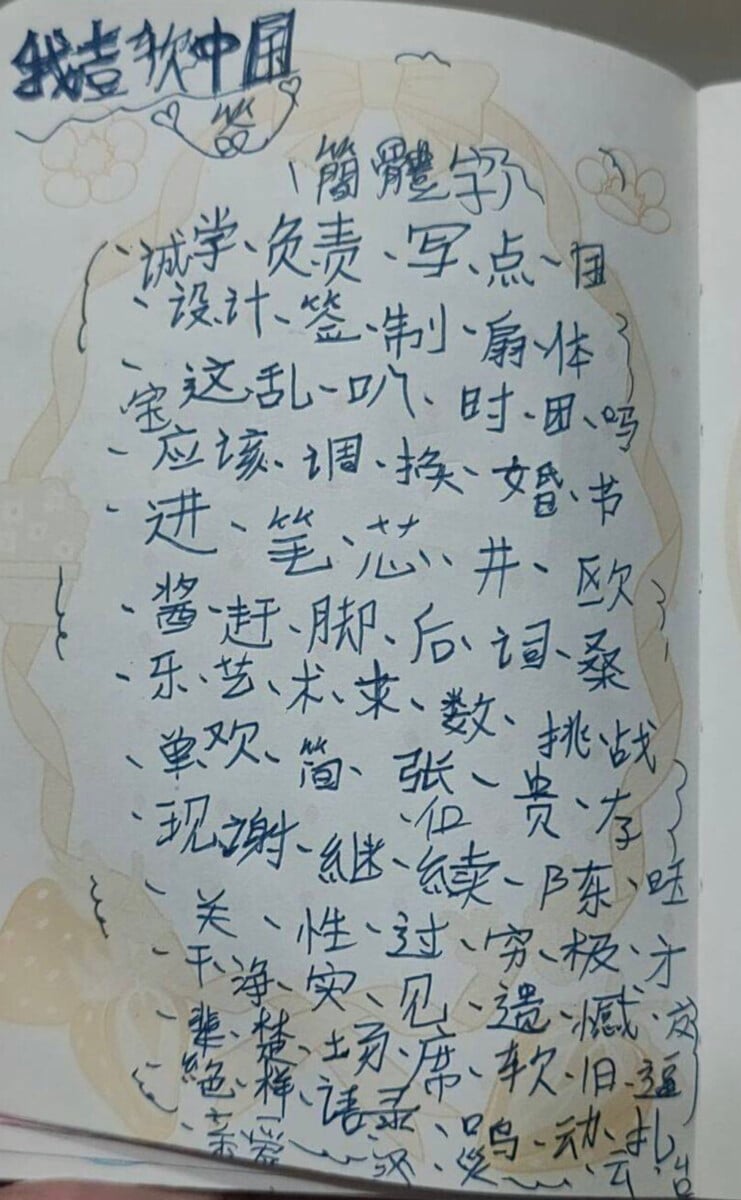 我吉软中国
簡體字
诚学、负责、写、点、国
设计、签、制、扇、体
宝这、乱、叭、时、团、吗
应该、调、换、婚、节
进、笔、芯、井、欧
酱、赶、脚、后、词、桑
乐、艺、术、来、数、挑战
单欢、简、张、贵、存
现、谢、继、续、陈、旺
关、性、过、穷、极、才
干、海、实、见、遗憾、皮
辈、楚、场、席、软、旧、逼
絕、样、语录
亲爱、汉、鸟、动、扎